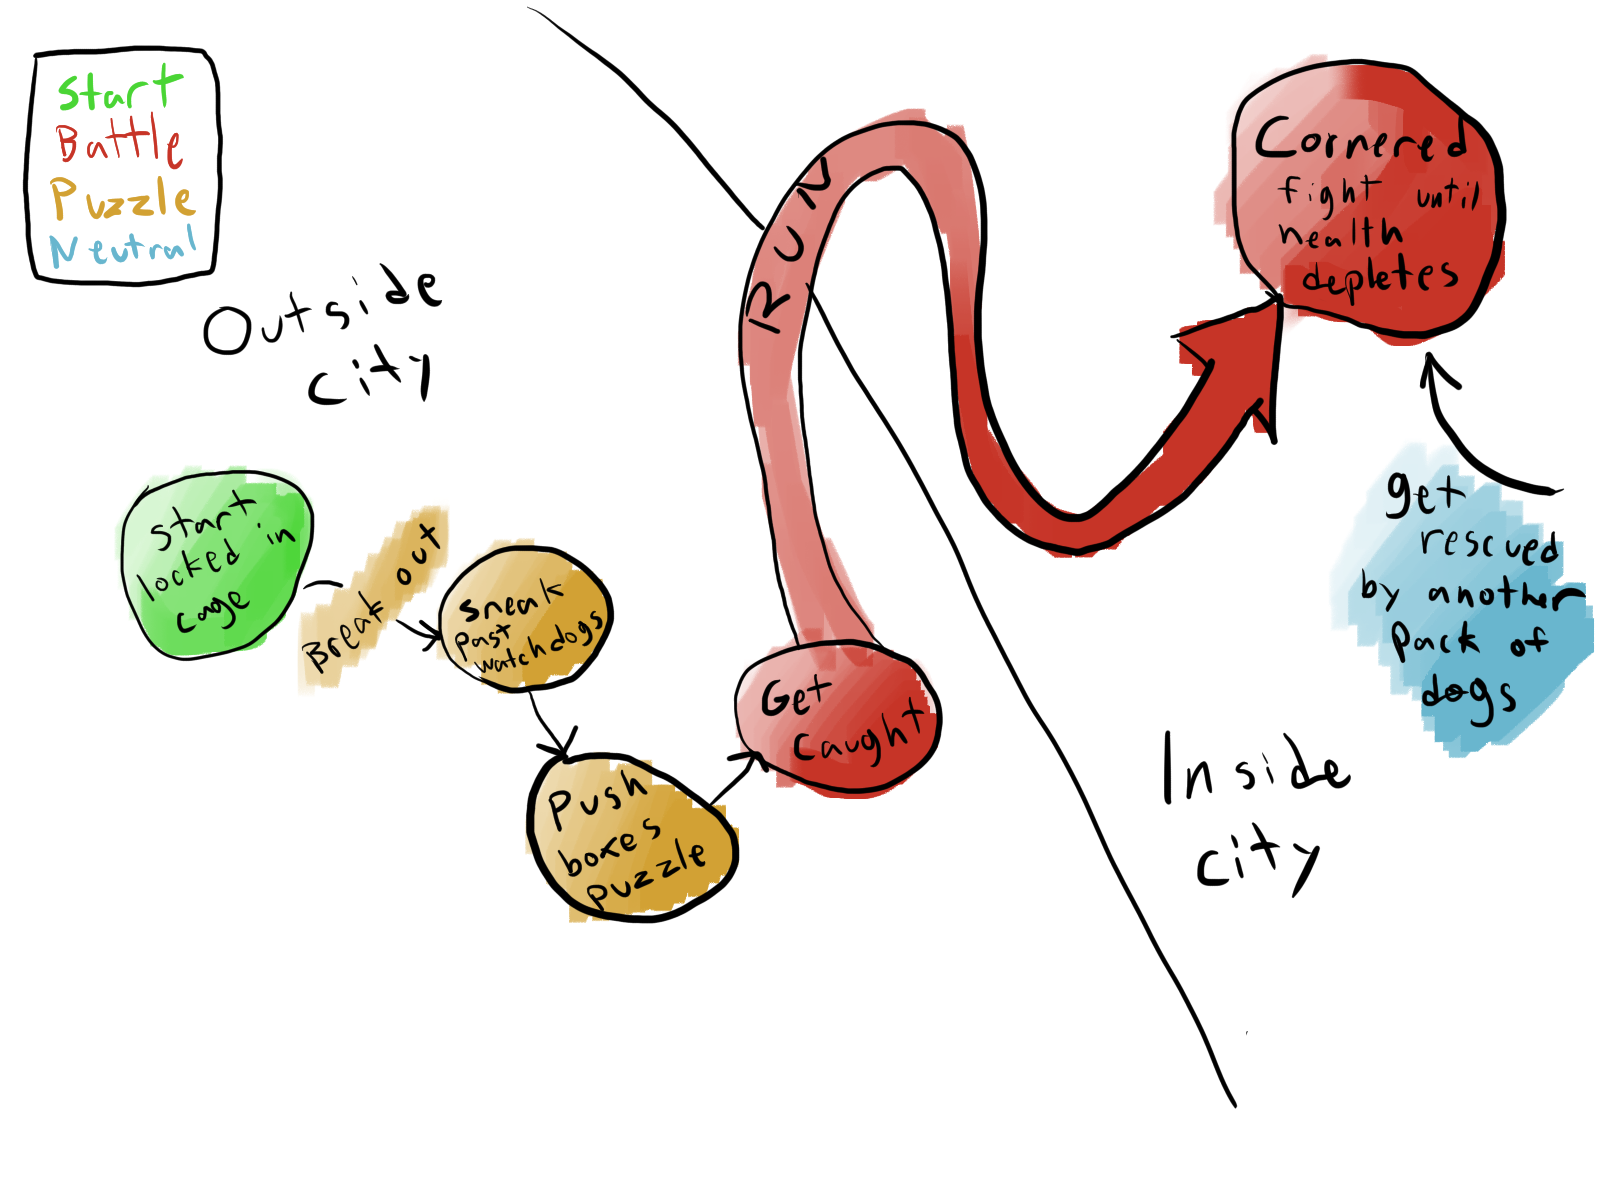 Start
Battle
Puzzle
Neutral
Outside
city
Start
locked in
cage
Break out
Sneak
Past
watchdogs
Push
boxes
puzzle
Get
caught
RUN
Cornered
fight until
health
depletes
get
rescued
by another
pack of
dogs
Inside
city